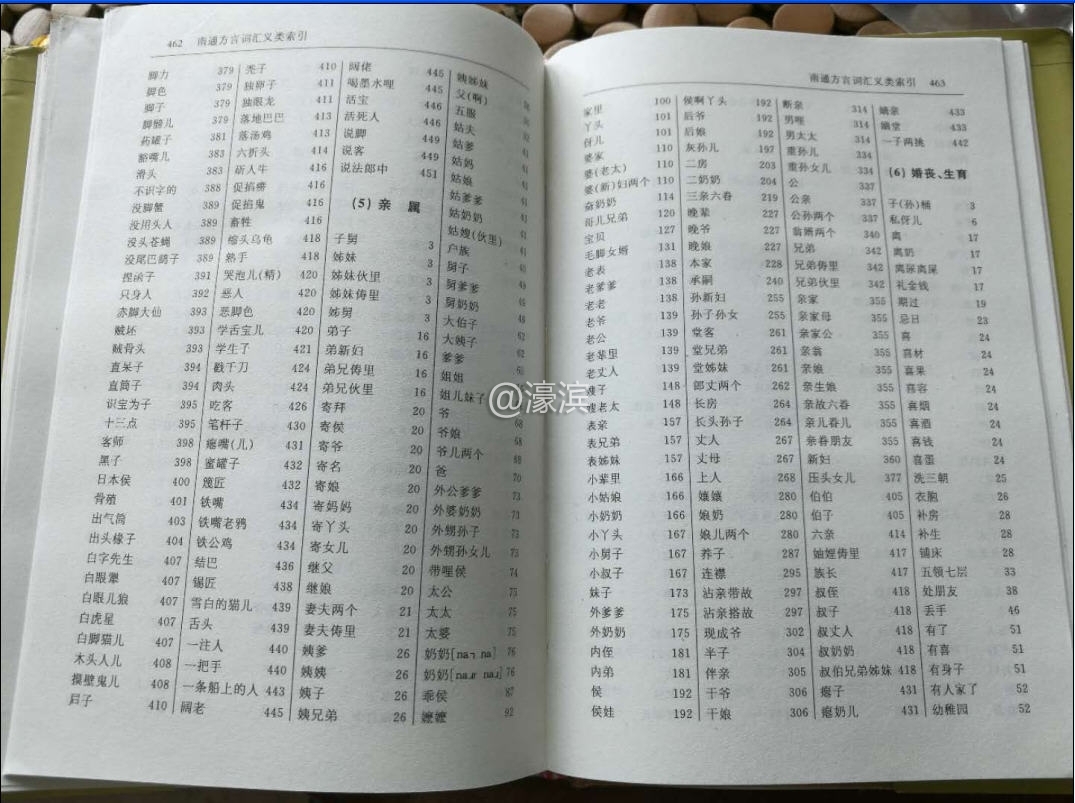 462 南通方言词汇义类索引
脚力 379
脚色 379
脚子 379
脚髈儿 379
药罐子 381
豁嘴儿 383
滑头 383
不识字的 388
没脚蟹 389
没用头人 389
没头苍蝇 389
没尾巴鹞子 389
捏函子 391
只身人 392
赤脚大仙 393
贼坯 393
贼骨头 393
直呆子 394
直筒子 394
识宝为子 395
十三点 395
客师 398
黑子 398
日本侯 400
骨殖 401
出气筒 403
出头椽子 404
白字先生 407
白眼犟 407
白眼儿狼 407
白虎星 407
白脚猫儿 407
木头人儿 408
摸壁鬼儿 408
尸子 410
秃子 410
独卵子 411
独眼龙 411
落地巴巴 413
落汤鸡 413
六折头 414
斫人牛 416
促掐痨 416
促掐鬼 416
畜牲 416
缩头乌龟 418
熟手 418
哭泡儿(精) 420
恶人 420
恶脚色 420
学舌宝儿 420
学生子 421
戳千刀 424
肉头 424
吃客 426
笔杆子 430
瘪嘴(儿) 431
蜜罐子 432
篾匠 432
铁嘴 434
铁嘴老鸦 434
铁公鸡 434
结巴 436
锡匠 438
雪白的猫儿 439
舌头 439
一注人 440
一把手 440
一条船上的人 443
阔老 445
阔佬 445
喝墨水哩 445
活宝 446
活死人 446
说脚 449
说客 449
说法郎中 451
(5) 亲 属
子舅 3
姊妹 3
姊妹伙里 3
姊妹俦里 3
姊舅 3
弟子 16
弟新妇 16
弟兄俦里 16
弟兄伙里 16
寄拜 20
寄侯 20
寄爷 20
寄名 20
寄娘 20
寄妈妈 20
寄丫头 20
寄女儿 20
继父 20
继娘 20
妻夫两个 21
妻夫俦里 21
姨爹 26
姨姨 26
姨子 26
姨兄弟 26
姨姊妹
父(啊)
五服
姑夫
姑爹
姑妈
姑娘
姑爹爹 41
姑奶奶 41
姑嫂(伙里) 41
户族
舅子
舅爹爹
舅奶奶
大伯子
大姨子 62
爹爹
姐姐
姐儿妹子
爷 68
爷娘 68
爷儿两个 68
爸 70
外公爹爹 73
外婆奶奶 73
外甥孙子 73
外甥孙女儿 73
带哩侯 74
太公 75
太太 75
太婆 75
奶奶[na˥ na] 76
奶奶 76
乖侯 87
嬷嬷 92
南通方言词汇义类索引 463
家里 100
丫头 101
伢儿 101
婆家 110
婆(老太) 110
婆(新)妇两个 110
奋奶奶 114
哥儿兄弟 120
宝贝 127
毛脚女婿 131
老表 138
老爹爹 138
老老 138
老爷 139
老公 139
老辈里 139
老丈人 139
嫂子 148
嫂老太 148
表亲 157
表兄弟 157
表姊妹 157
小辈里 166
小姑娘 166
小奶奶 166
小丫头 166
小舅子 167
小叔子 167
妹子 173
外爹爹 175
外奶奶 175
内侄 181
内弟 181
侯 192
侯娃 192
侯啊丫头 192
后爷 192
后娘 192
灰孙儿 197
二房 203
二奶奶 204
三亲六眷 249
晚辈 227
晚爷 227
晚娘 227
本家 228
承嗣 240
孙新妇 255
孙子孙女 255
堂客 261
堂兄弟 261
堂姊妹 261
郎丈两个 262
长房 264
长头孙子 264
丈人 264
丈母 267
上人 268
孃孃 280
娘奶 280
娘儿两个 280
养子 287
连襟 295
沾亲带故 297
沾亲搭故 297
现成爷 302
半子 304
伴亲 305
干爷 306
干娘 306
断亲 314
男哩 314
男太太 314
重孙儿 334
重孙女儿 334
公 337
公亲 337
公孙两个 337
翁婿两个 340
兄弟 342
兄弟俦里 342
兄弟伙里 342
亲家 355
亲家母 355
亲家公 355
亲翁 355
亲娘 355
亲生娘 355
亲故六眷 355
亲儿眷儿 355
亲眷朋友 355
新妇 360
压头女儿 377
伯伯 405
伯子 405
六亲 414
妯娌俦里 417
族长 417
叔侄 418
叔子 418
叔丈人 418
叔奶奶 418
叔伯兄弟姊妹 418
瘪子 431
瘪奶儿 431
嫡亲 433
嫡堂 433
一子两挑 442
(6) 婚丧、生育
子(孙)桶 3
私伢儿 6
离 17
离奶 17
离尿离屎 17
礼金钱 17
期过 19
忌日 23
喜 24
喜材 24
喜果 24
喜容 24
喜烟 24
喜酒 24
喜钱 24
喜蛋 24
洗三朝 25
衣胞 26
补房 28
补生 28
铺床 28
五领七层 33
处朋友 38
丢手 46
有了 51
有喜 51
有身子 51
有人家了 52
幼稚园 52
@濠滨